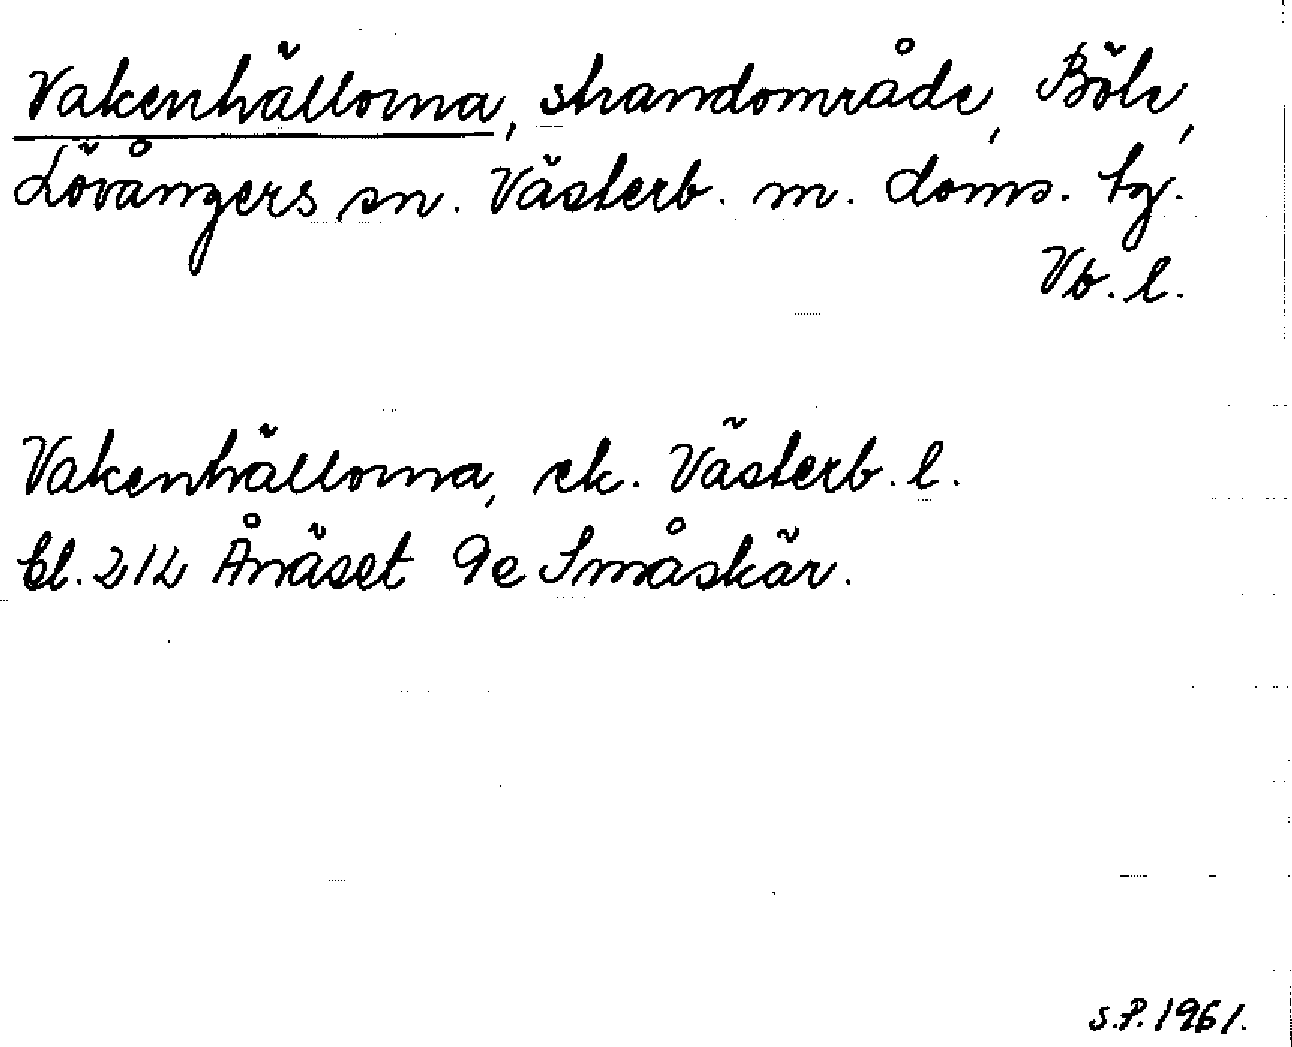 Vakenhällorna, strandområde, Böle,
Lövångers sn. Västerb. m. doms. tg.
Vb. l.
Vakenhällorna, ek. Västerb. l.
bl. 21L Ånäset 9e Småskär.
S.P. 1961.